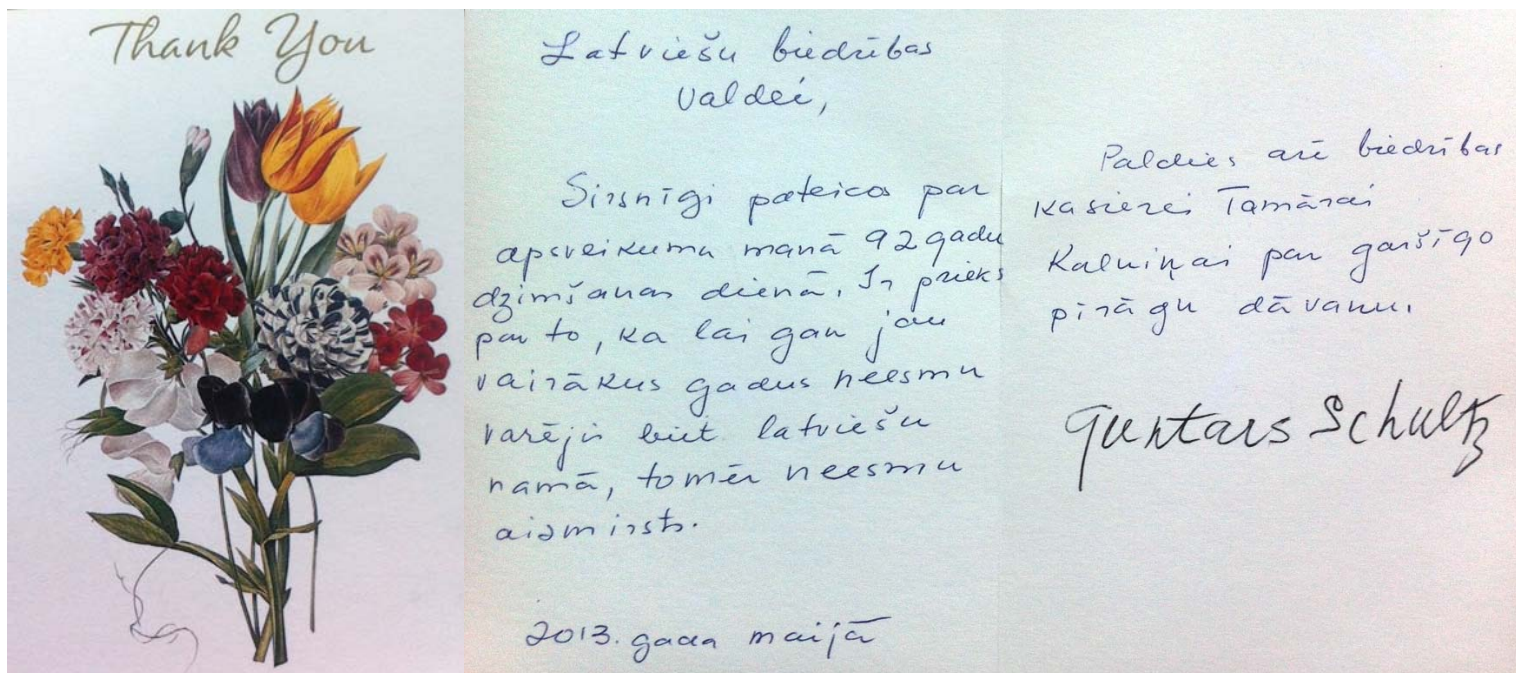 Thank You
Latviešu biedrības
valdei,
Sirsnīgi pateicos par
apsveikumu manā 92 gadu
dzimšanas dienā. Ir prieks
par to, ka lai gan jau
vairākus gadus neesmu
varējis būt latviešu
namā, tomēr neesmu
aizmirsts.
2013. gada maijā
Paldies arī biedrības
kasierei Tamārai
Kalniņai par garšīgo
pīrāgu dāvanu.
Guntars Schultz